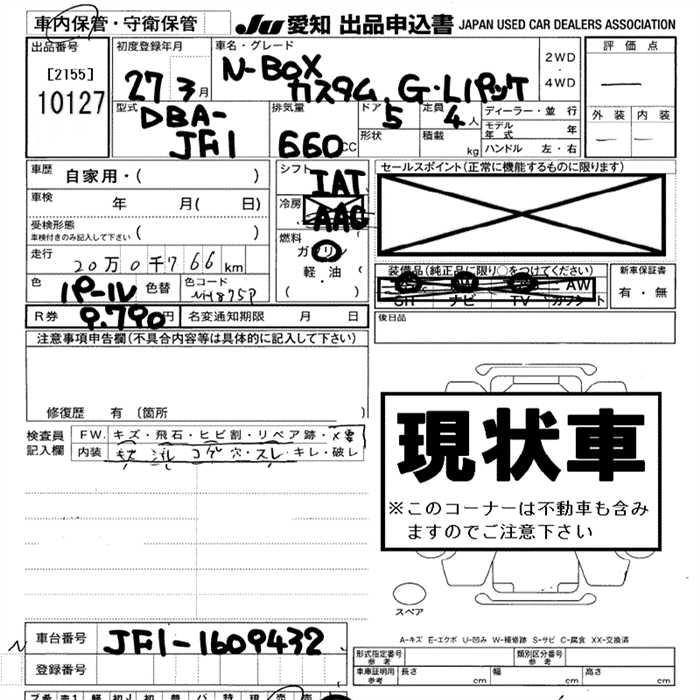 車内保管・守衛保管 JU 愛知 出品申込書 JAPAN USED CAR DEALERS ASSOCIATION
出品番号 初度登録年月 車名・グレード 評価点
[2155] 27 3月 N-BOX 2WD・4WD
10127 カスタム G・Lパッケ
型式 排気量 ドア 5 定員 4人 ディーラー・並行 外装 内装
DBA- モデル年式 年
JF1 660CC 形状 積載 kg ハンドル 左・右
車歴 自家用・( ) シフト IAT セールスポイント(正常に機能するものに限ります)
車検 年 月( 日) 冷房 AAC
受検形態
車検付きのみ記入して下さい ( ) 燃料 ガソリン
走行 20万0千766km 軽・油 装備品(純正品に限り○をつけてください) 新車保証書
AW 有・無
色 パール 色替 色コード NH875P ( ) ナビ TV
R券 9.790円 名変通知期限 月 日 後日品
注意事項申告欄(不具合内容等は具体的に記入して下さい)
修復歴 有 〔箇所 〕
検査員 FW. キズ・飛石・ヒビ割・リペア跡・
記入欄 内装 コゲ穴・スレ・キレ・破レ
現状車
※このコーナーは不動車も含み
ますのでご注意下さい
スペア
A-キズ E-エクボ U-凹み W-補修跡 S-サビ C-腐食 XX-交換済
車台番号 JF1-1609432 型式指定番号 参考 類別区分番号 参考
登録番号 車庫証明用 参考 長さ 幅 高さ